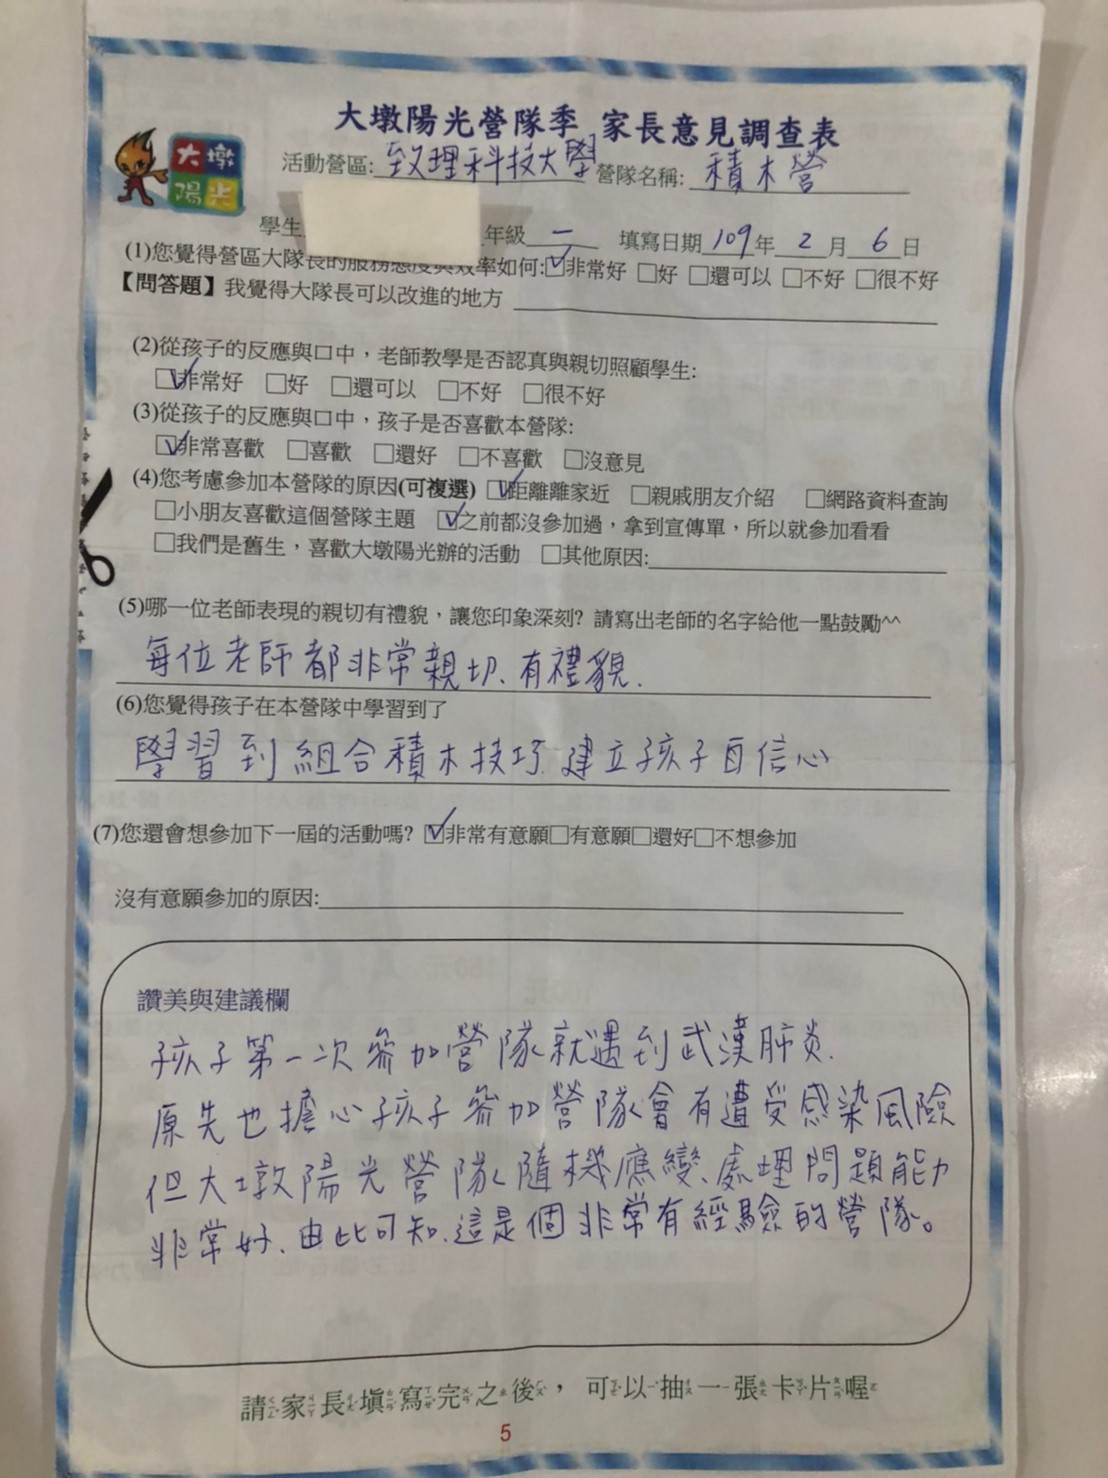 大墩陽光營隊季 家長意見調查表
大墩
陽光
活動營區: 致理科技大學 營隊名稱: 積木營
學生 年級 一 填寫日期 109 年 2 月 6 日
(1)您覺得營區大隊長的服務態度與效率如何:☑非常好 □好 □還可以 □不好 □很不好
【問答題】我覺得大隊長可以改進的地方
(2)從孩子的反應與口中，老師教學是否認真與親切照顧學生:
☑非常好 □好 □還可以 □不好 □很不好
(3)從孩子的反應與口中，孩子是否喜歡本營隊:
☑非常喜歡 □喜歡 □還好 □不喜歡 □沒意見
(4)您考慮參加本營隊的原因(可複選) ☑距離離家近 □親戚朋友介紹 □網路資料查詢
□小朋友喜歡這個營隊主題 ☑之前都沒參加過，拿到宣傳單，所以就參加看看
□我們是舊生，喜歡大墩陽光辦的活動 □其他原因:
(5)哪一位老師表現的親切有禮貌，讓您印象深刻? 請寫出老師的名字給他一點鼓勵^^
每位老師都非常親切、有禮貌.
(6)您覺得孩子在本營隊中學習到了
學習到組合積木技巧、建立孩子自信心
(7)您還會想參加下一屆的活動嗎? ☑非常有意願□有意願□還好□不想參加
沒有意願參加的原因:
讚美與建議欄
孩子第一次參加營隊就遇到武漢肺炎.
原先也擔心孩子參加營隊會有遭受感染風險
但大墩陽光營隊隨機應變、處理問題能力
非常好、由此可知、這是個非常有經驗的營隊。
請家長填寫完之後，可以抽一張卡片喔
5